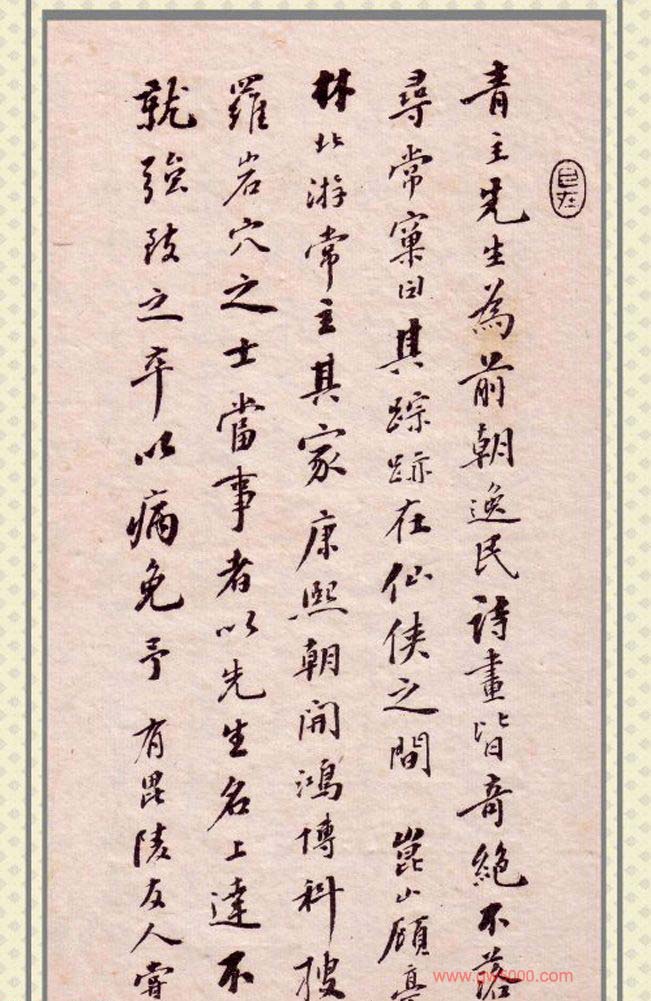 青主先生為前朝逸民詩畫皆奇絕不落
尋常窠臼其踪跡在仙俠之間 崑山顧亭
林北游常主其家康熙朝開鴻博科搜
羅岩穴之士當事者以先生名上達不
就強致之卒以病免予 有毘陵友人嘗
www.gw5000.com